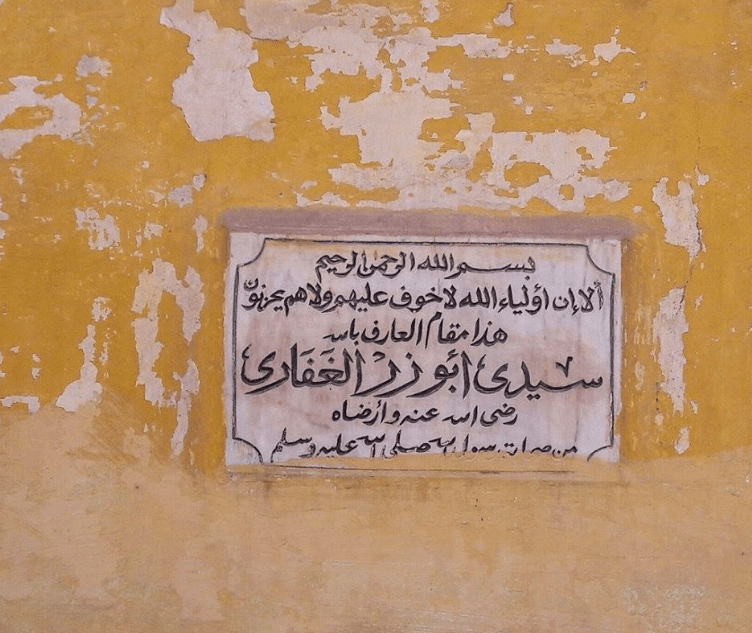 بسم الله الرحمن الرحيم
ألا إن أولياء الله لا خوف عليهم ولا هم يحزنون
هذا مقام العارف بالله
سيدى أبو زر الغفارى
رضى الله عنه وأرضاه
من صحابة رسول الله صلى الله عليه وسلم